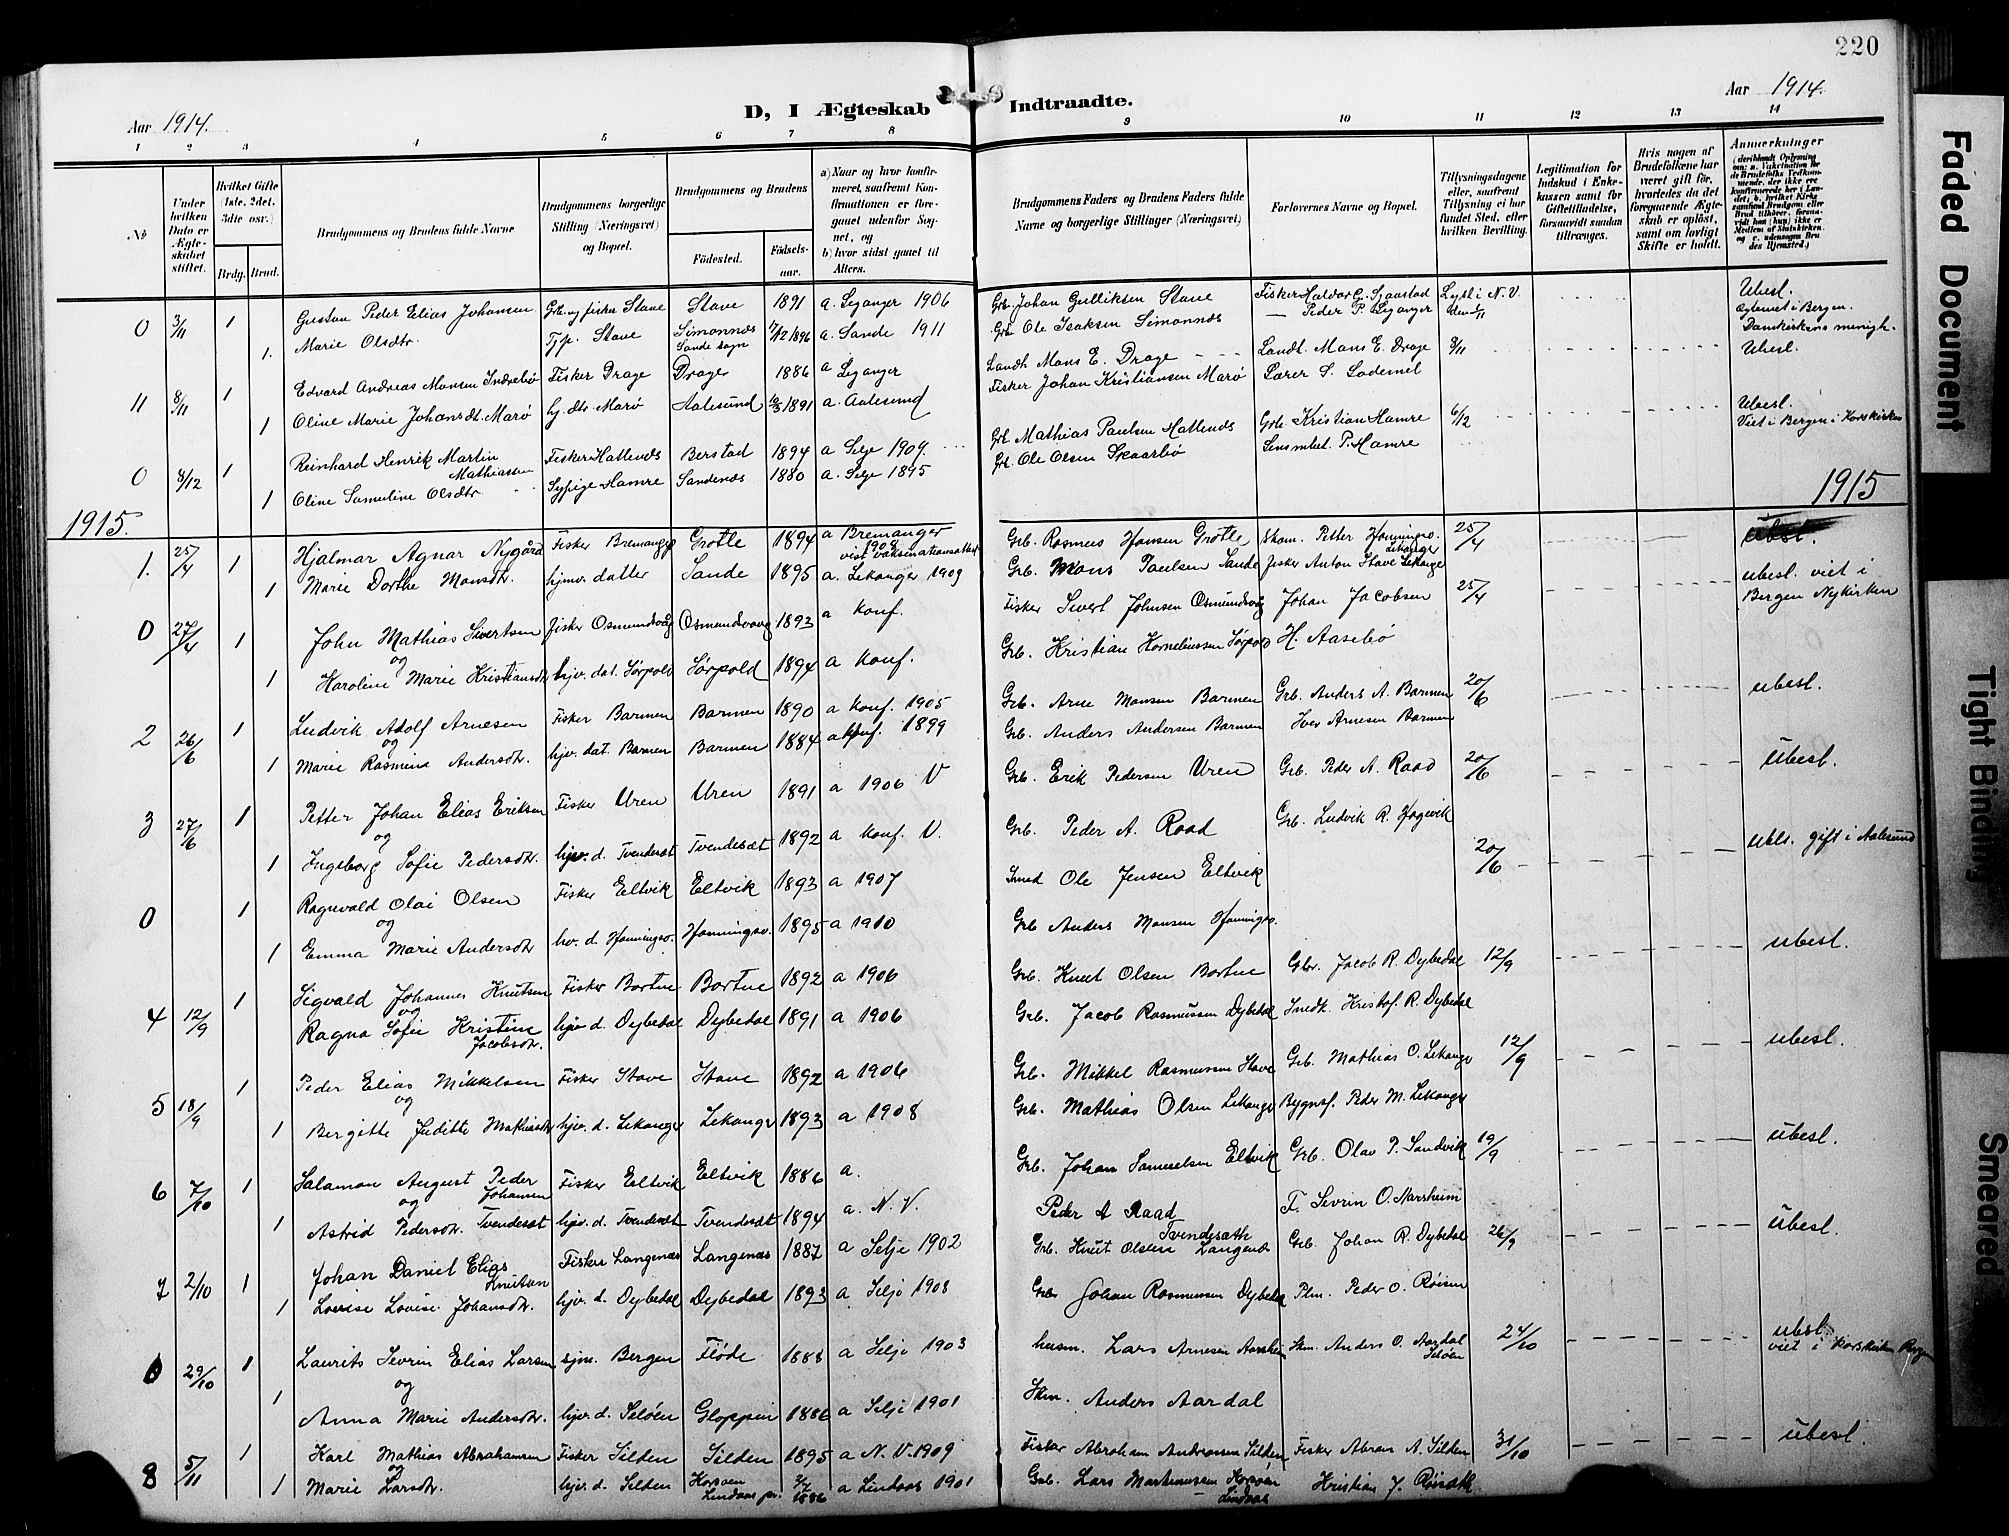 220
Aar 1914.
D, I Ægteskab Indtraadte.
Aar 1914.
1 2 3 4 5 6 7 8 9 10 11 12 13 14
No
Under hvilken Dato er Ægteskabet stiftet.
Hvilket Gifte (1ste, 2det, 3die osv.)
Brdg. Brud.
Brudgommens og Brudens fulde Navne
Brudgommens borgerlige Stilling (Næringsvei) og Bopæl.
Brudgommens og Brudens
Fødested.
Fødselsaar.
a) Naar og hvor konfirmeret, saafremt Konfirmationen er foregaaet udenfor Sognet, og b) hvor sidst gaaet til Alters.
Brudgommens Faders og Brudens Faders fulde Navne og borgerlige Stillinger (Næringsvei)
Forlovernes Navne og Bopæl.
Tillysningsdagene eller, saafremt Tillysning ei har fundet Sted, efter hvilken Bevilling.
Legitimation for Indskud i Enkekassen samt for Giftetilladelse, forsaavidt saadan tiltrænges.
Hvis nogen af Brudefolkene har været gift før, hvorledes da det foregaaende Ægteskab er opløst, samt om lovligt Skifte er holdt.
Anmerkninger
0 3/11 1 Gustav Peder Elias Johansen Stave 1891 a. Leganger 1906 Grb. Johan Gulliksen Stave Ubesl.
1. Marie Olsdtr. Tjp. Stave Simonnes Sande sogn 1896 a. Sande 1911 Ole Isaksen Simonnes
11 8/11 1 Edvard Andreas Monsen Indrebø Fisker Drage Drage 1886 a Leganger Landh. Mons E. Drage Landh. Mons E. Drage 8/11 Ubesl.
1 Oline Marie Johansdt. Marø hj. dtr. Marø Aalesund 1891 a. Aalesund Fisker Johan Kristiansen Marø
0 8/12 1 Reinhard Henrik Martin Mathiassen Fisker Hallenes Berstad 1894 a Selje 1909. Mathias Paulsen Kristian Hamre 6/12 Ubesl. Viet i Bergen i Korskirken
1 Oline Samuline Olsdtr. Sypige Hamre Sandenes 1880 a. Selje 1895 Ole Olsen Skaarbø P. Hamre
1915. 1915
1. 25/4 1 Hjalmar Agnar Nygård Fisker Bremanger Grotle 1894 a Bremanger 1908 Grb. Rasmus Hansen Grotle Petter Honningsv. 25/4 ubesl.
1 Marie Dorthe Monsdtr. hjmv. datter Sande 1895 a. Lekanger 1909 Grb. Mons Paulsen Sande Fisker Anton Stave Lekanger
0 27/4 1 John Mathias Sivertsen Fisker Osmundvåg Osmundvaag 1893 a konf. Fisker Sivert Johnsen Osmundvåg Johan Jacobsen 25/4 ubesl. viet i Bergen Nykirken
og
1 Karoline Marie Kristiansdtr hjv. dat. Sørpold Sørpold 1894 a Konf. Grb. Kristian Korneliussen Sørpold H. Aasebø
2 26/6 1 Ludvik Adolf Arnesen Fisker Barmen Barmen 1890 a Konf. 1905 Grb. Arne Monsen Barmen Grb. Anders A. Barmen 20/6 ubesl.
og
1 Marie Rasmine Andersdtr. hjv. dat. Barmen Barmen 1884 a konf. 1899 Grb. Anders Andersen Barmen Iver Arnesen Barmen
3 27/6 1 Petter Johan Elias Eriksen Fisker Uren Uren 1891 a 1906 V Grb. Erik Pedersen Uren Grb. Peder A. Raad 20/6 ubesl.
og
1 Ingeborg Sofie Pedersdtr. hjv. d. Tvendesæt Tvendesæt 1892 a konf. V. Grb. Peder A. Raad Grb. Ludvik R. Hagevik
0 1 Ragnvald Olai Olsen Fisker Eltvik Eltvik 1893 a 1907 Smed Ole Jensen Eltvik 20/6 ubls. gift i Aalesund
og
1 Emma Marie Andersdtr hv. d. Honningsv. Honningsv. 1895 a 1910 Grb. Anders Monsen Honningsv.
4 12/9 1 Sigvald Johannes Knutsen Fisker Bortne Bortne 1892 a 1906 Grb. Knut Olsen Bortne Gbr. Jacob R. Dybedal 12/9 ubesl.
og
1 Ragna Sofie Kristine Jacobsdtr. hjv d. Dybedal Dybedal 1891 a 1906 Grb. Jacob Rasmussen Dybedal Kristof. R. Dybedal
5 18/9 1 Peder Elias Mikkelsen Fisker Stave Stave 1892 a 1906 Grb. Mikkel Rasmussen Stave Grb. Mathias O. Lekanger 12/9 ubesl.
og
1 Bergitte Juditte Mathiasdtr hjv. d. Lekanger Lekanger 1893 a 1908 Grb. Mathias Olsen Lekanger Bygnsf. Peder M. Lekanger
6 7/10 1 Salamon August Peder Johansen Fisker Eltvik Eltvik 1886 a. Grb. Johan Samuelsen Eltvik Grb. Olav P. Sandvik 19/9 ubesl.
og
1 Astrid Pedersdtr. Tvendesæt hjv. d. Tvendesæt Tvendesæt 1894 a. N. V. Peder A Raad Tvendesæth F. Sevrin O. Aarsheim
7 2/10 1 Johan Daniel Elias Knutsen Fisker Langenæs Langenæs 1887 a Selje 1902 Grb. Knut Olsen Langenæs Grb. Johan R. Dybedal 26/9 ubesl.
1 Lovise Lovise Johansdtr. hjv. d. Dybedal Dybedal 1893 a Selje 1908 Grb. Johan Rasmussen Dybedal Plm. Peder O. Røisen
0 29/10 1 Laurits Sevrin Elias Larsen sjm. Bergen Flöde 1888 a Selje 1903 husm. Lars Arnesen Aarsheim Anders O. Aardal Seløen 24/10 ubesl. viet i Korskirken Bergen
og
1 Anna Marie Andersdtr. hjv. d. Seløen Gloppen 1886 a Selje 1901 Anders Aardal
8 5/11 1 Karl Mathias Abrahamsen Fisker Silden Silden 1895 a N. V. 1909 Fisker Abraham Andreassen Silden Fisker Abram A. Silden 31/10 ubesl.
og
1 Marie Larsdtr. hjv. d. Silden Lindaas 1886 a Lindaas 1901 Grb. Lars Lindaas Kristian J.
Faded Document
Tight Binding
Smeared